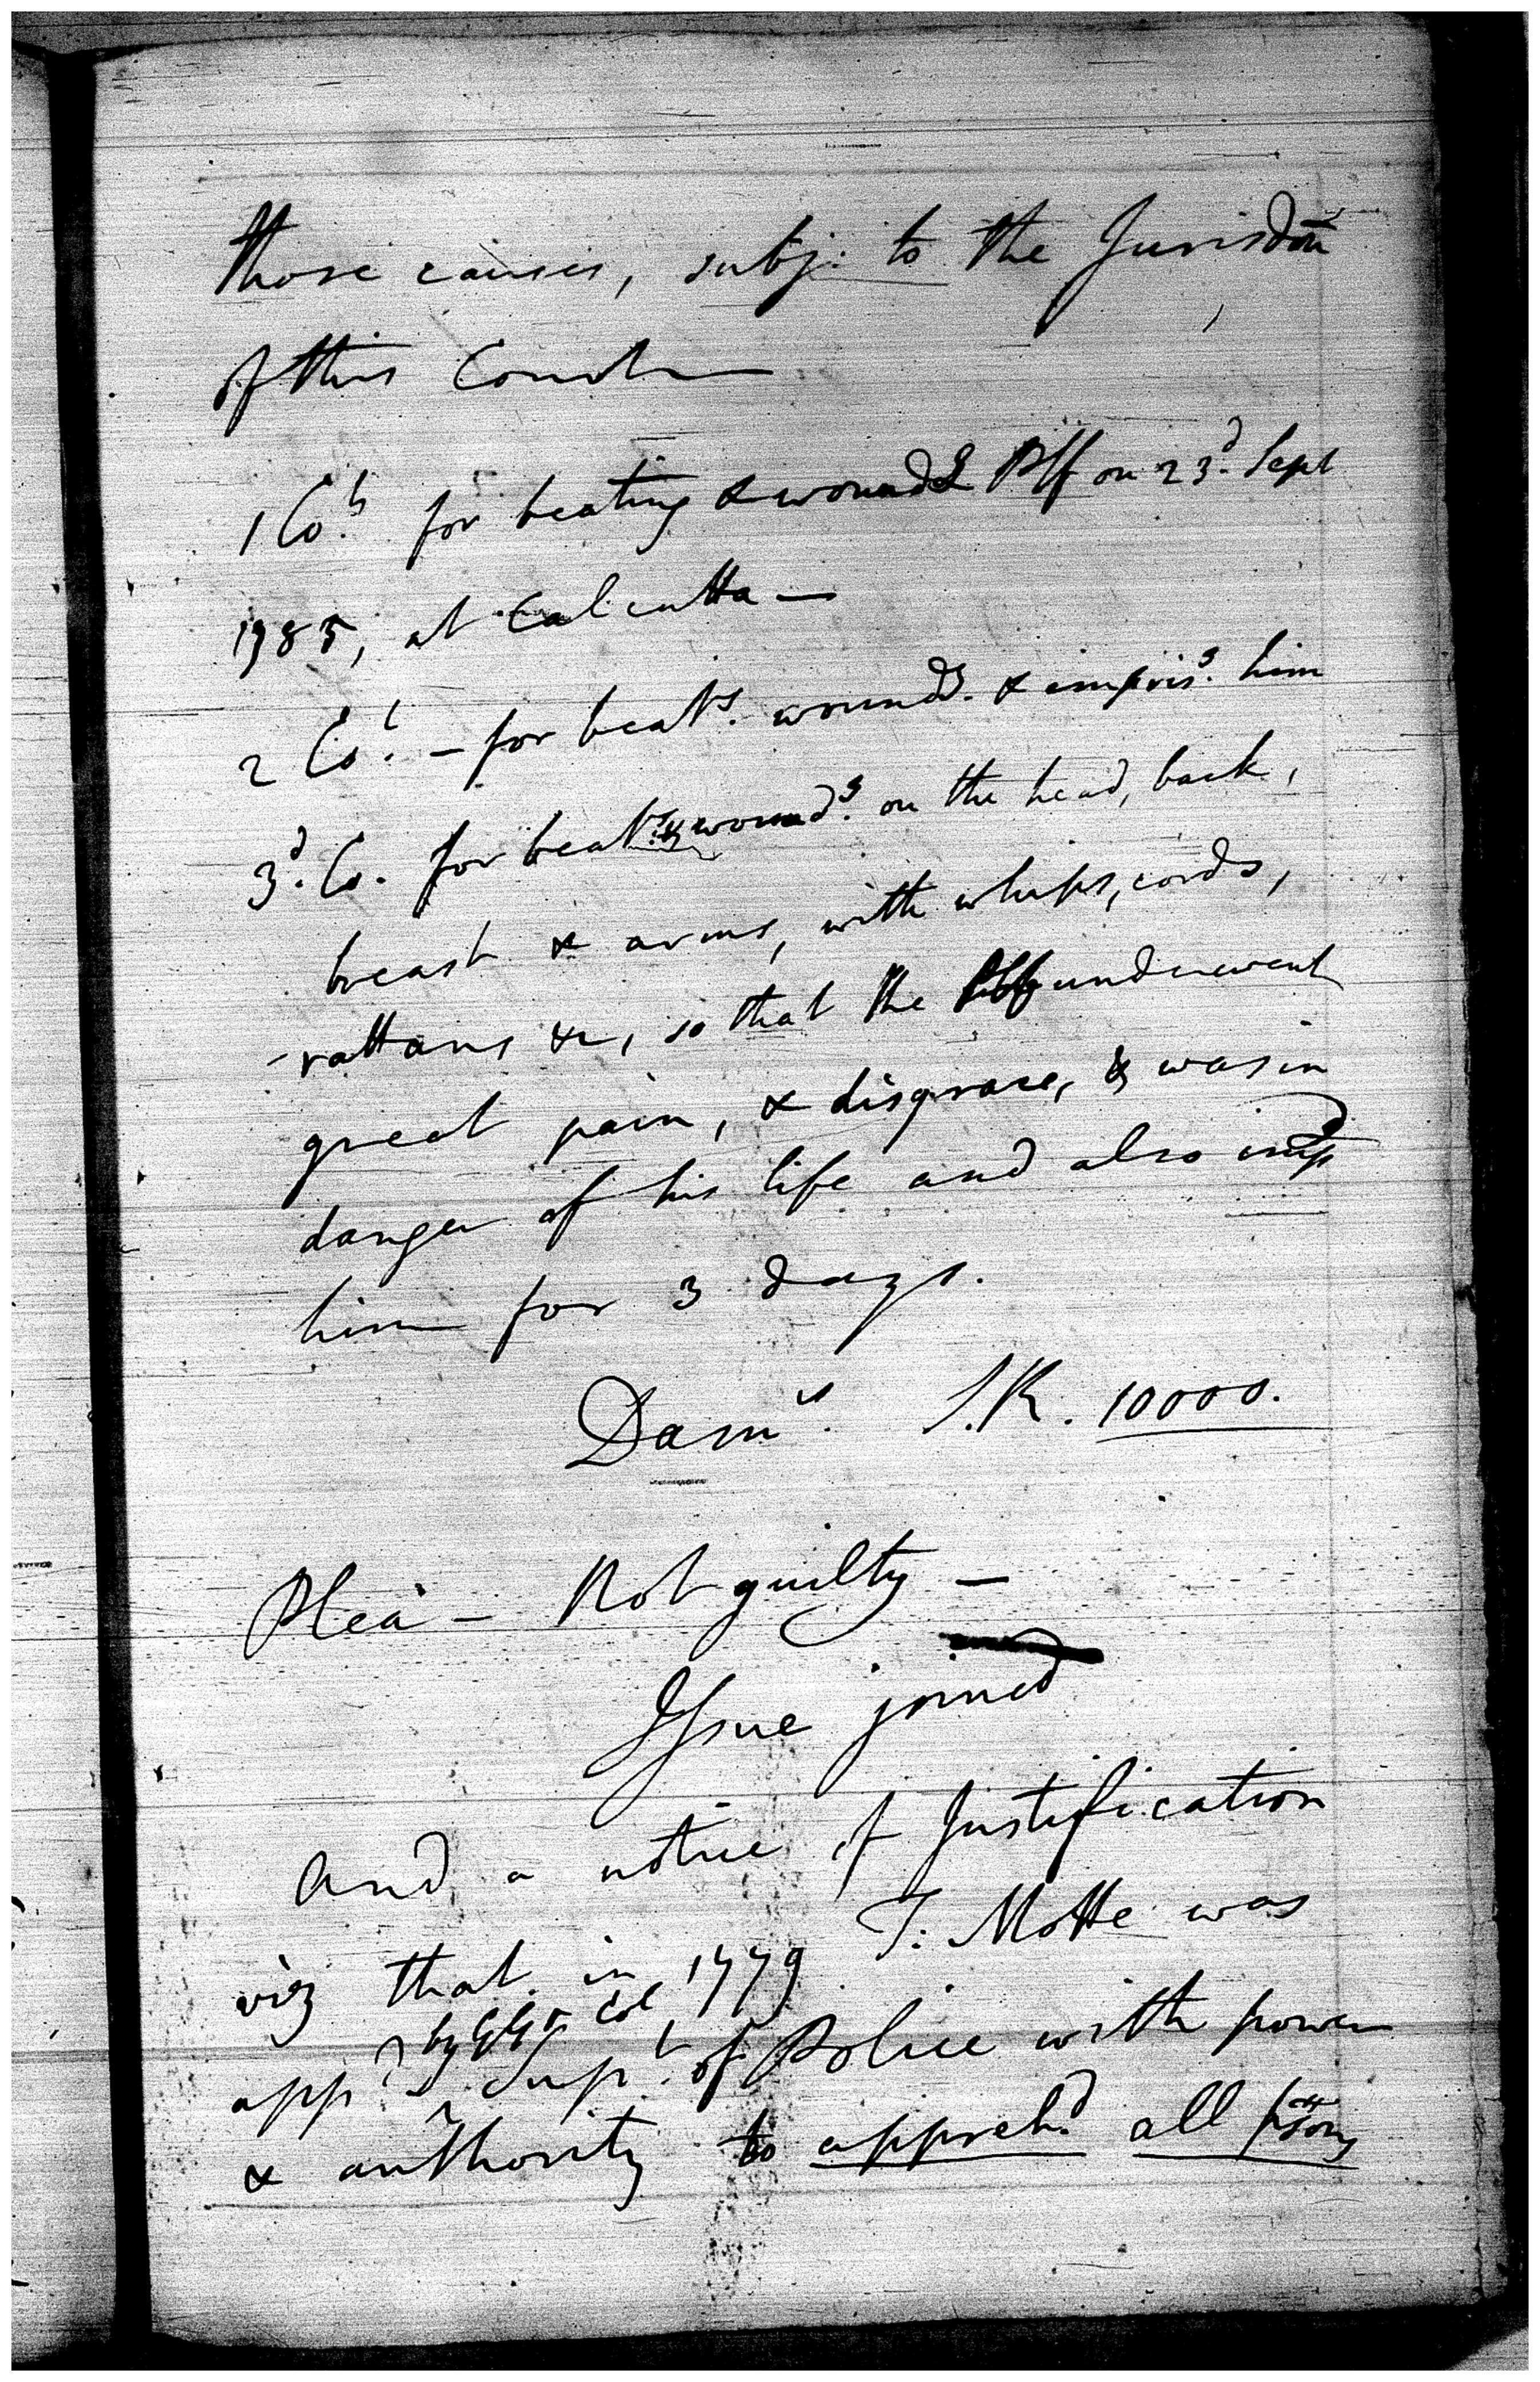 those causes, subj: to the Jurisdon
of this Court
1 Cot. for beating & woundg Plf on 23d. Sept
1785, at Calcutta —
2 Cot. – for beatg. woundg. & imprisg. him
3d. Co. for beatg. & woundg. on the head, back,
breast & arms, with whips, cords,
rattans &c, so that the Plf underwent
great pain, & disgrace, & was in
danger of his life and also impd
him for 3 days.
Dams. S.R. 10000.
Plea – Not guilty –
Issue joined
and a notice of Justification
viz that in 1779 T. Motte was
by GG & Col
appd Supt. of Police with power
& authority to apprehd. all